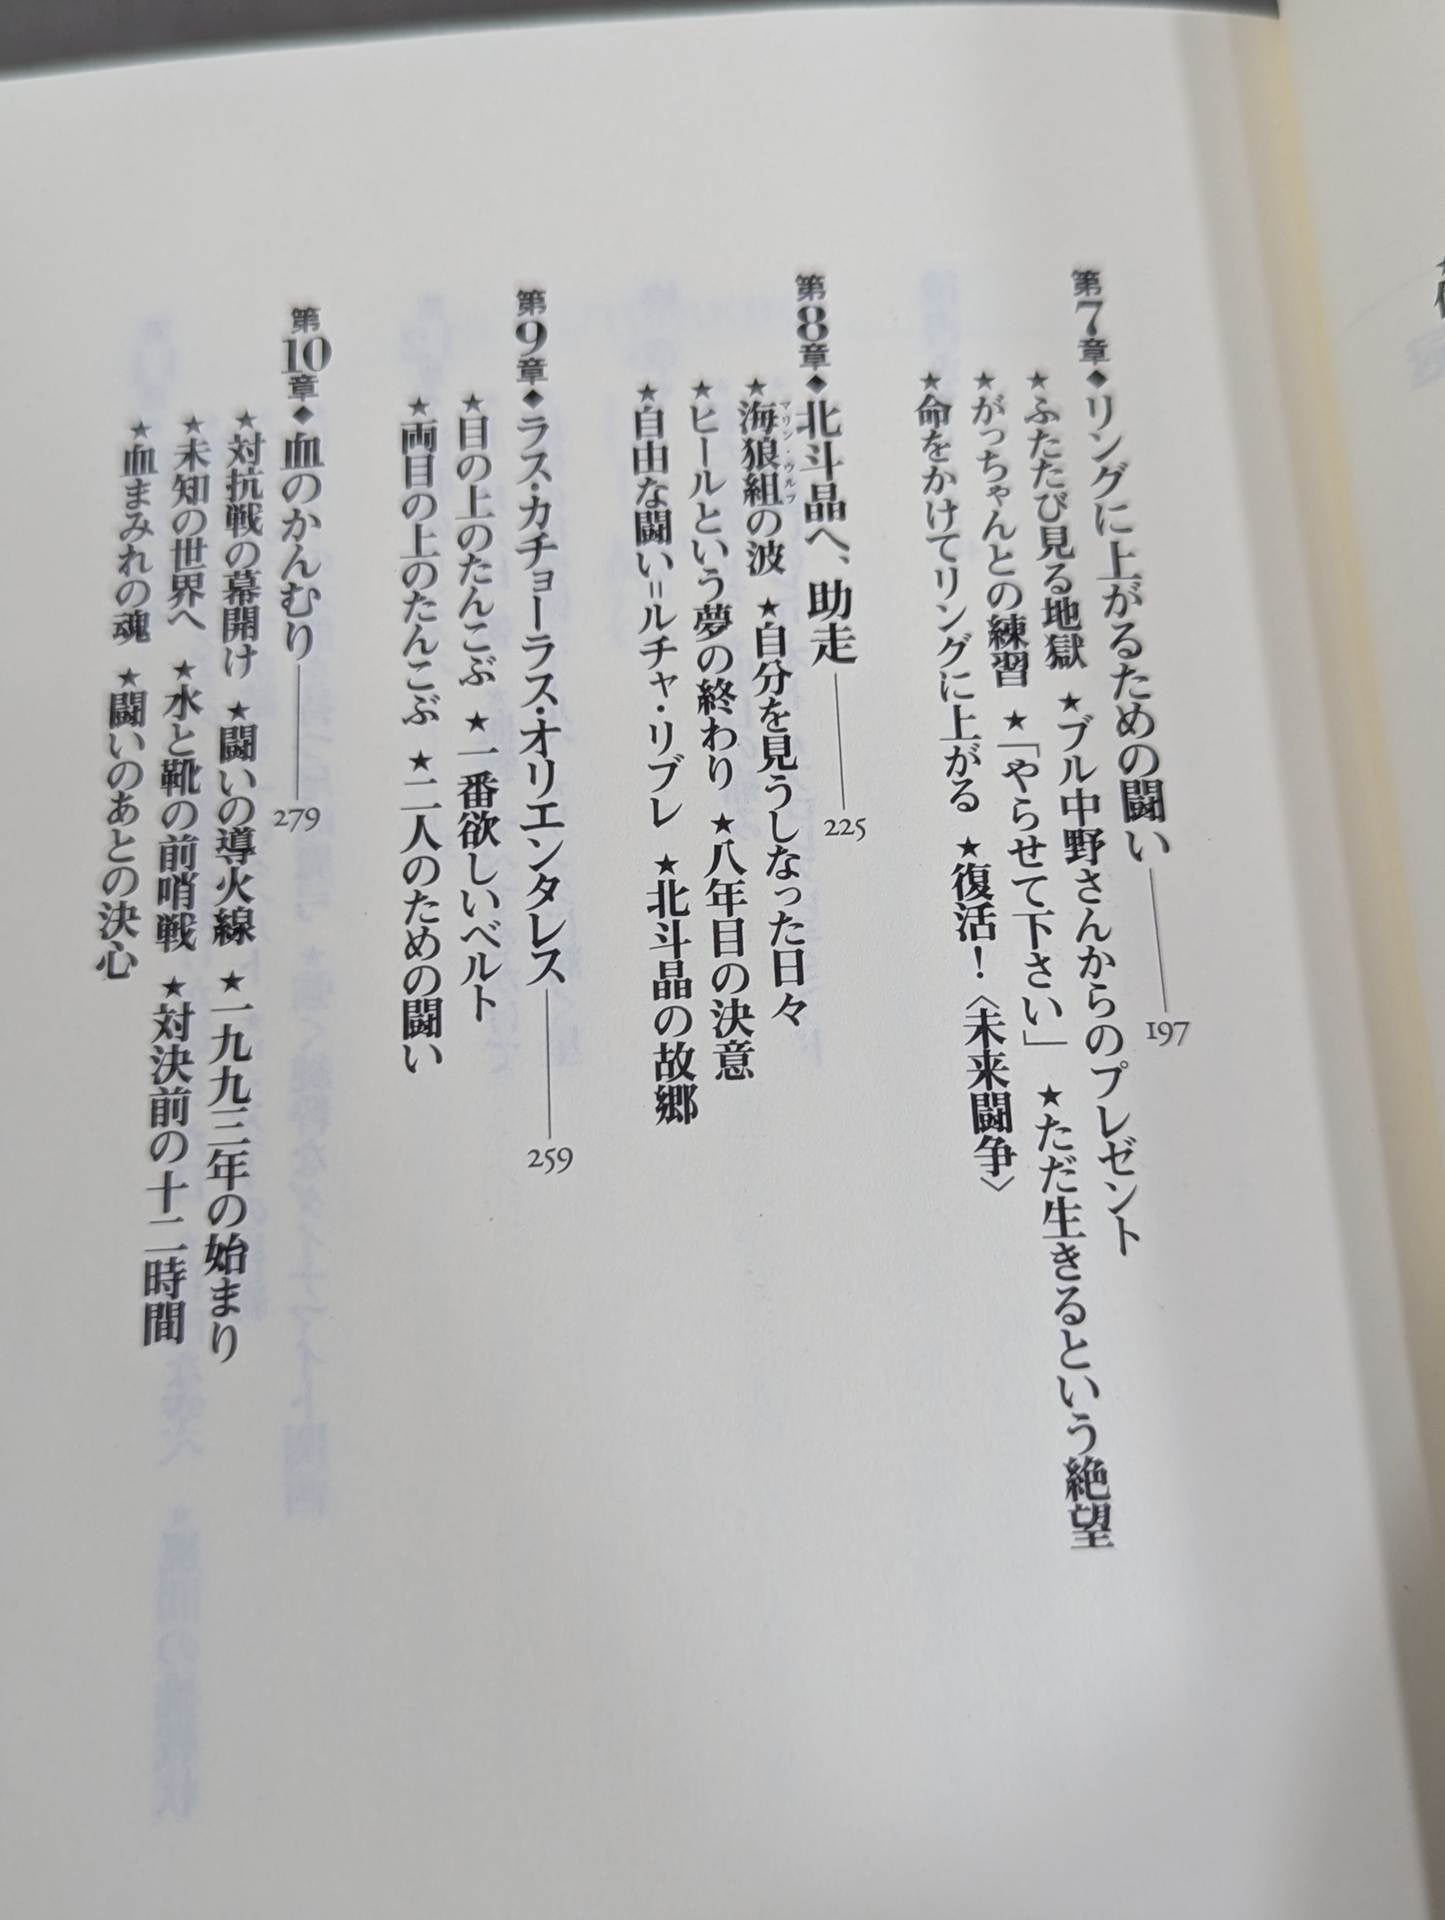 第7章◆リングに上がるための闘い——197
★ふたたび見る地獄 ★ブル中野さんからのプレゼント
★がっちゃんとの練習 ★「やらせて下さい」 ★ただ生きるという絶望
★命をかけてリングに上がる ★復活！〈未来闘争〉
第8章◆北斗晶へ、助走——225
マリン・ウルフ
★海狼組の波 ★自分を見うしなった日々
★ヒールという夢の終わり ★八年目の決意
★自由な闘い＝ルチャ・リブレ ★北斗晶の故郷
第9章◆ラス・カチョーラス・オリエンタレス——259
★目の上のたんこぶ ★一番欲しいベルト
★両目の上のたんこぶ ★二人のための闘い
第10章◆血のかんむり——279
★対抗戦の幕開け ★闘いの導火線 ★一九九三年の始まり
★未知の世界へ ★水と靴の前哨戦 ★対決前の十二時間
★血まみれの魂 ★闘いのあとの決心